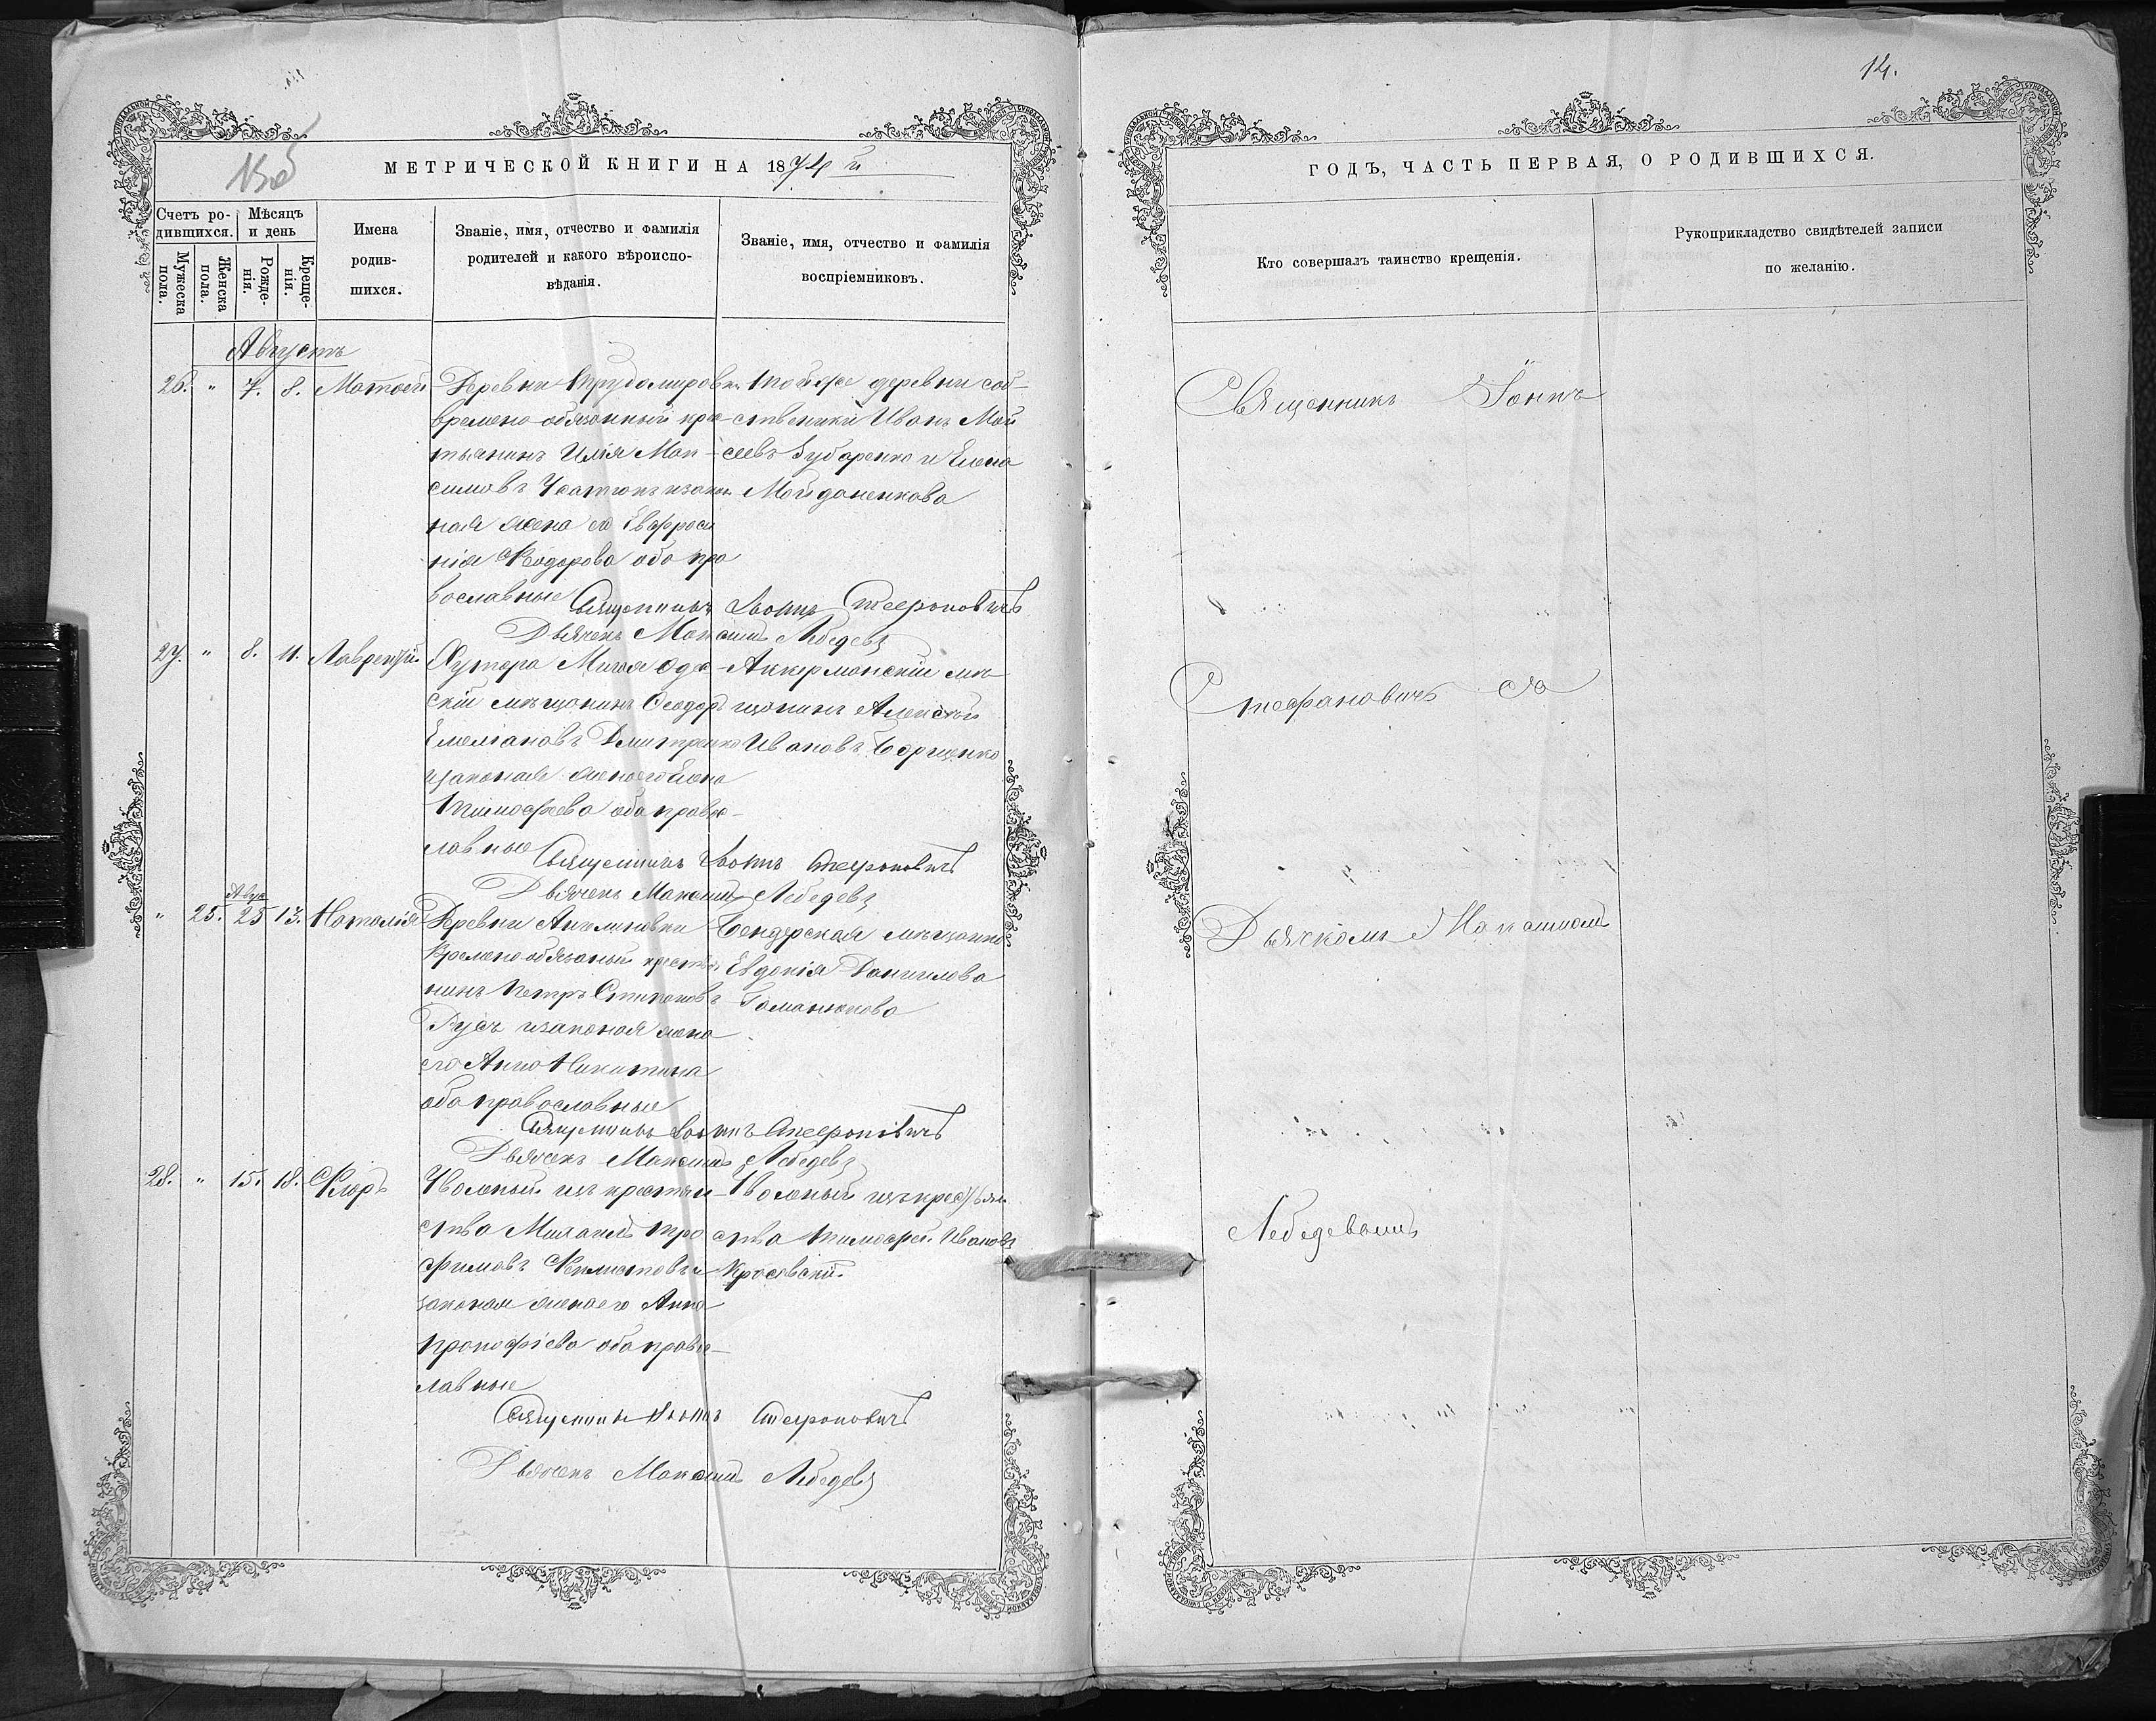 14.
МЕТРИЧЕСКОЙ КНИГИ НА 1874 й
Счетъ ро-
дившихся.
Мѣсяцъ
и день
Мужеска
пола.
Женска
пола.
Рожде-
нія.
Креще-
нія.
Имена
родив-
шихся.
Званіе, имя, отчество и фамилія
родителей и какого вѣроиспо-
вѣданія.
Званіе, имя, отчество и фамилія
воспріемниковъ.
Августъ
26. " 7. 8. Матѳей
Деревни Трудомировки
временно обязанный крес
тьянинъ Илія Мак-
симовъ
ная жена его Евфроси
нія Ѳеодорова оба пра
вославные
тойже деревни соб-
ственикъ Иванъ Мой
сеевъ Зубаренко и Елена
Майданенкова
Священникъ Іоаннъ Стефановичъ
Дьячекъ Максимъ Лебедевъ
27. " 8. 11. Лаврентій
Хутора Милая Одес-
скій мѣщанинъ Ѳеодоръ
Емеліановъ Дмитренко
изаконая жена его Елена
Тимофеева оба право-
лавные
Аккерманскій мѣ-
щанинъ Алексѣй
Ивановъ Борщенко
Священникъ Іоаннъ Стефановичъ
Дьячекъ Максимъ Лебедевъ
" 25. Авг 25 13. Наталія
Деревни Ангелиновки
Временообязаный крестья
нинъ Петръ Стипановъ
Русъ изаконая жена
его Анна Никитина
оба православные
Бендерская мѣщанка
Евдокія Даниилова
Романюкова
Священникъ Іоаннъ Стефановичъ
Дьячекъ Максимъ Лебедевъ
28. " 15. 18. Флоръ
Уволеный изъ крестьян-
ства Михаилъ Тро
фимовъ Феклистовъ и
законая жена его Анна
Прокофіева оба право-
лавные
Уволеный изъ крестьян
ства Тимофей Ивановъ
Красовскій
Священникъ Іоаннъ Стефановичъ
Дьячекъ Максимъ Лебедевъ
ГОДЪ, ЧАСТЬ ПЕРВАЯ, О РОДИВШИХСЯ.
Кто совершалъ таинство крещенія.
Рукоприкладство свидѣтелей записи
по желанію.
Священникъ Іоаннъ
Стефановичъ съ
Дьячкомъ Максимомъ
Лебедевымъ